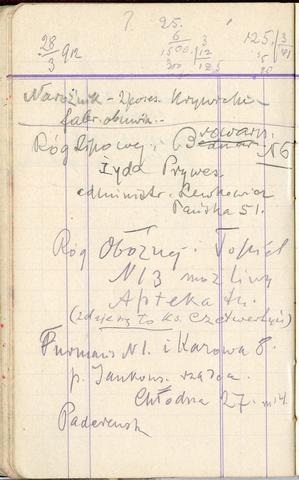 28/3 912
25.
6
1500
3
12
125
125.
3
41
Narożnik
fabr. obuwia.
Róg Lipowej i Browarn.
N 6
Żyda Prywes.
administr. Lewkowicz
Pańska 51.
Róg Oboźnej i Topiel
N 13 możliwy
Apteka tu.
(zdaje się to ks. Czetwertyń)
Furmańs N1. i Karowa 8.
p. Jankows. rządca.
Chłodna 27. m 14.
Paderewsk